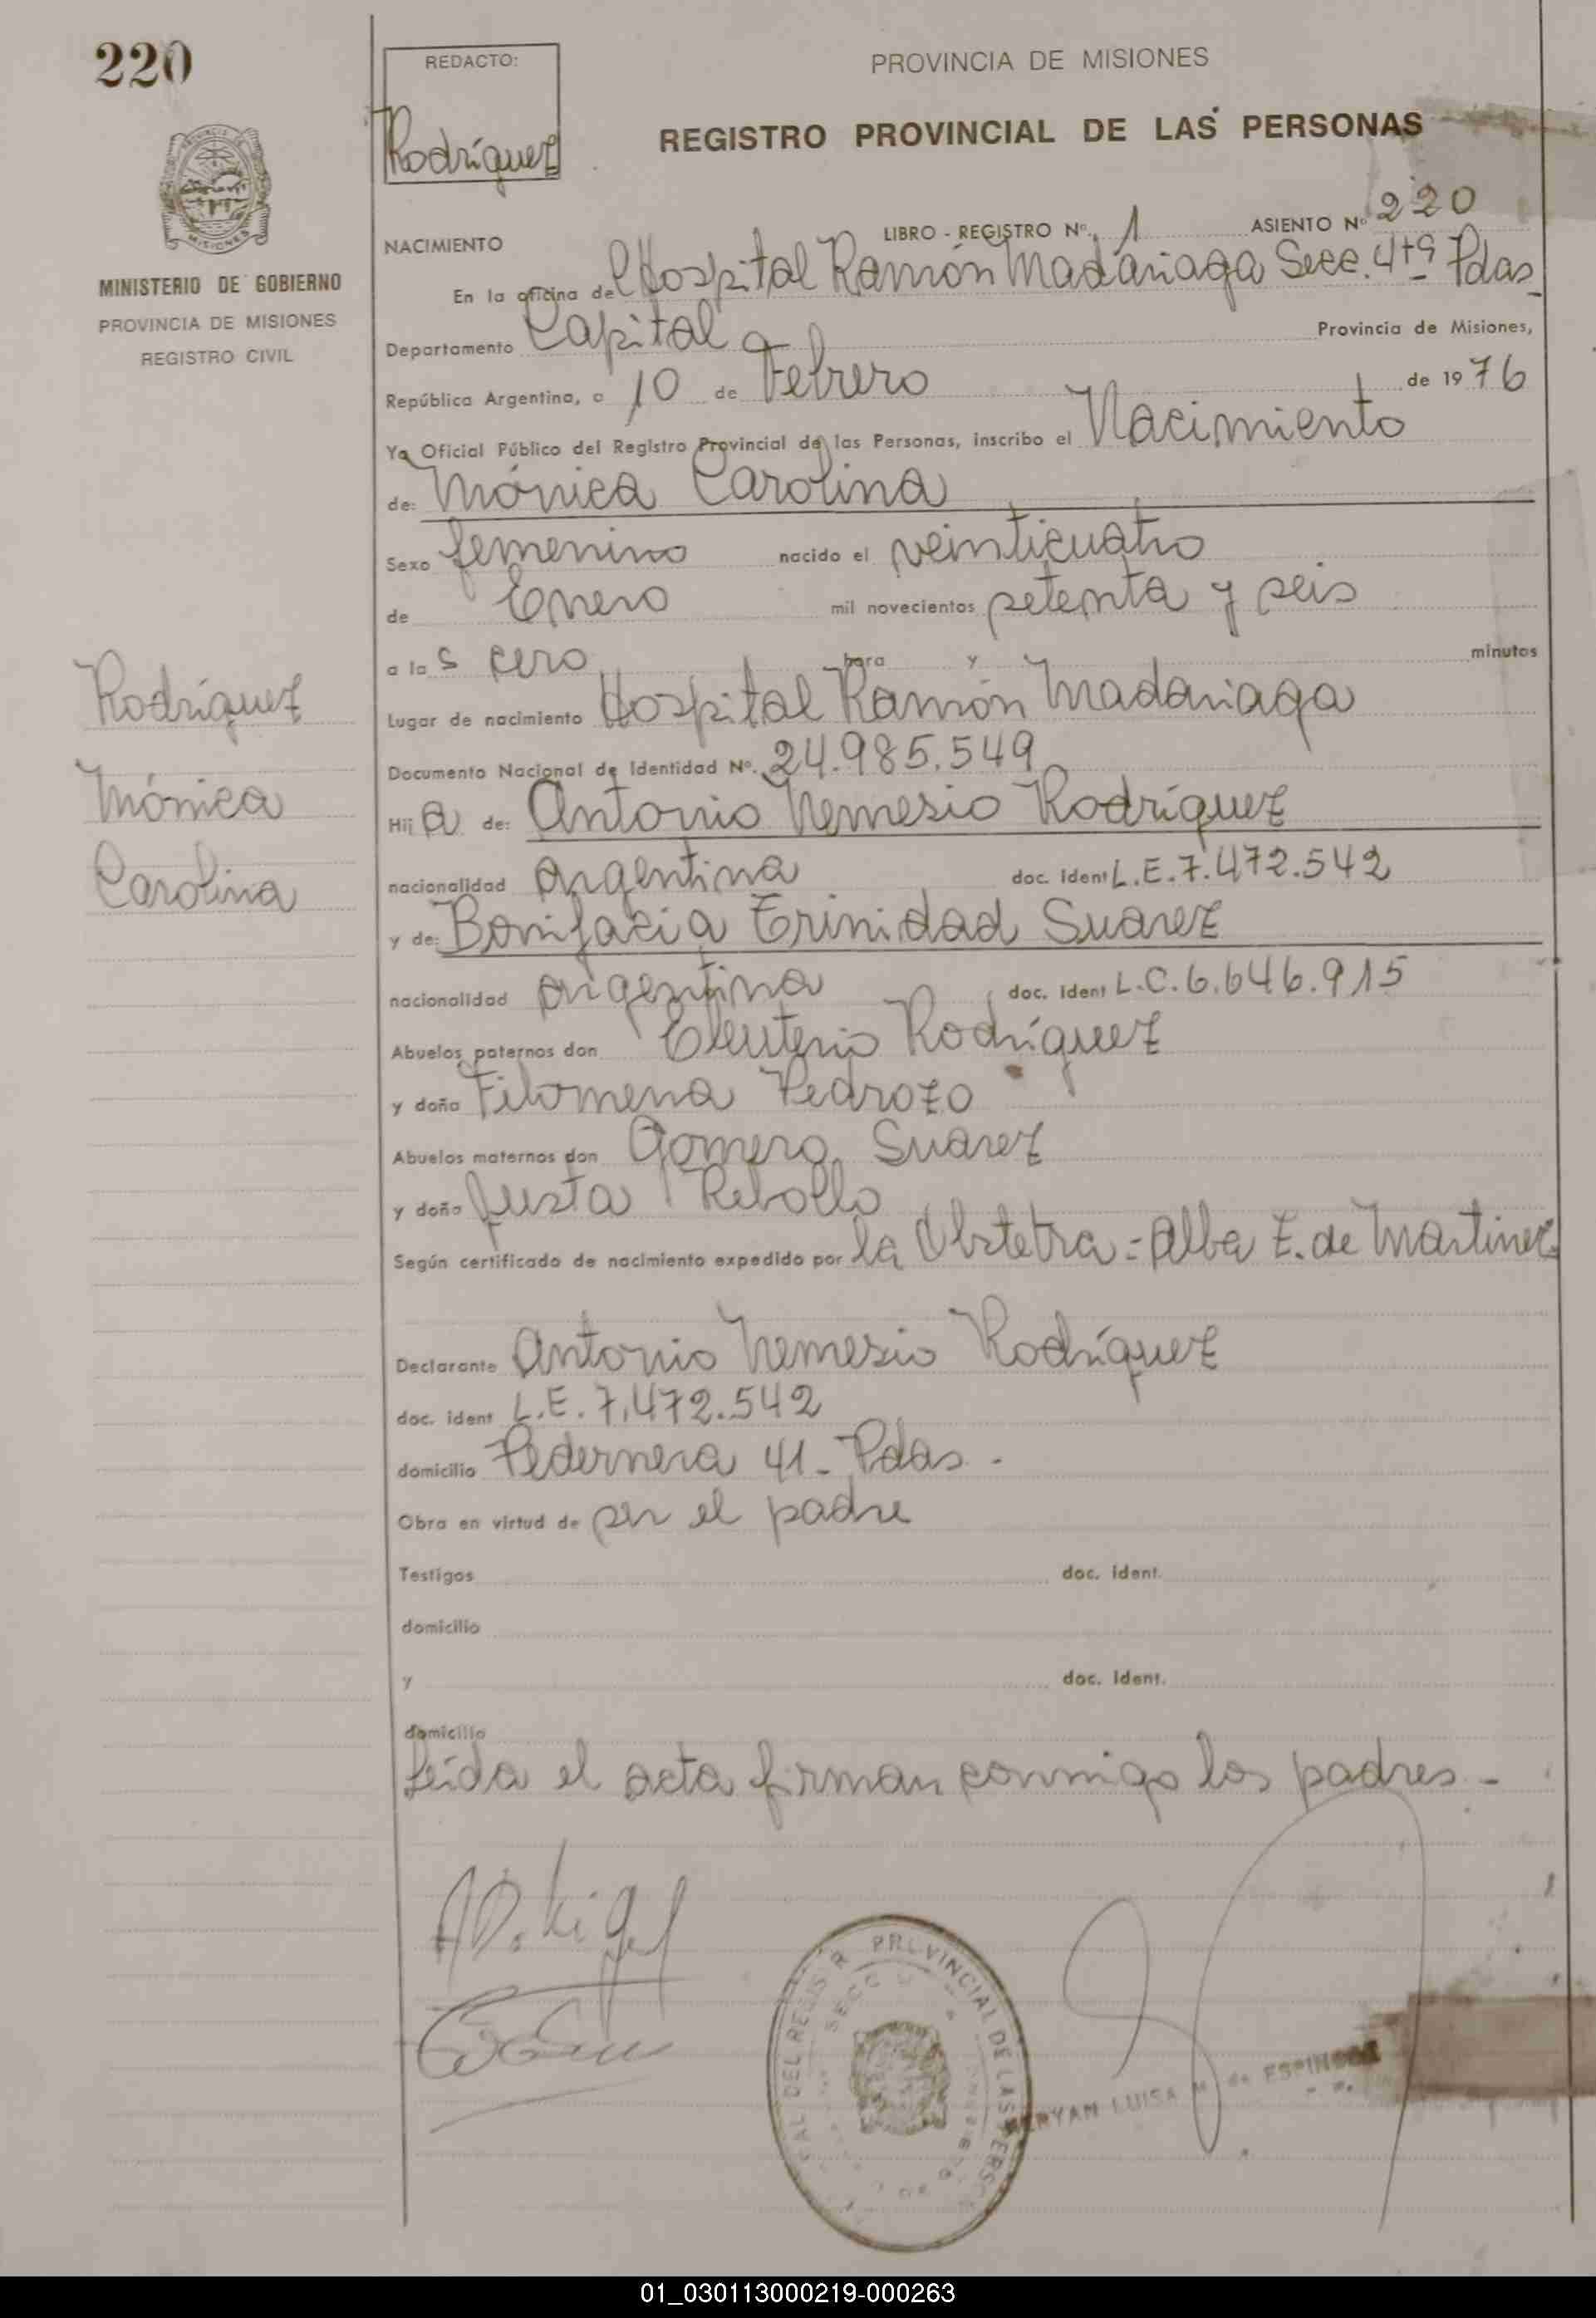 220
REDACTO:
Rodríguez
PROVINCIA DE MISIONES
REGISTRO PROVINCIAL DE LAS PERSONAS
MINISTERIO DE GOBIERNO
PROVINCIA DE MISIONES
REGISTRO CIVIL
NACIMIENTO
LIBRO - REGISTRO Nº. 1 ASIENTO Nº 220
En la oficina del Hospital Ramón Madariaga Secc. 4ta Pdas_
Departamento Capital Provincia de Misiones,
República Argentina, a 10 de Febrero de 1976
Yo Oficial Público del Registro Provincial de las Personas, inscribo el Nacimiento
de: Mónica Carolina
Sexo femenino nacido el veinticuatro
de Enero mil novecientos setenta y seis
a las cero hora y minutos
Lugar de nacimiento Hospital Ramón Madariaga
Documento Nacional de Identidad Nº. 24.985.549
Hija de: Antonio Nemesio Rodríguez
nacionalidad argentina doc. ident L.E.7.472.542
y de: Bonifacia Trinidad Suarez
nacionalidad argentina doc. ident L.C.6.646.915
Abuelos paternos don Eleuterio Rodríguez
y doña Filomena Pedrozo
Abuelos maternos don Gomero Suarez
y doña Justa Rebollo
Según certificado de nacimiento expedido por la Obstetra = Alba E. de Martinez
Declarante Antonio Nemesio Rodríguez
doc. ident L.E. 7.472.542
domicilio Pedernera 41 - Pdas -
Obra en virtud de ser el padre
Testigos doc. ident.
domicilio
y doc. ident.
domicilio
Leída el acta firman conmigo los padres -
Rodríguez
Mónica
Carolina
PROVINCIAL DE LAS
LUISA M de ESPINOZA
01_030113000219-000263